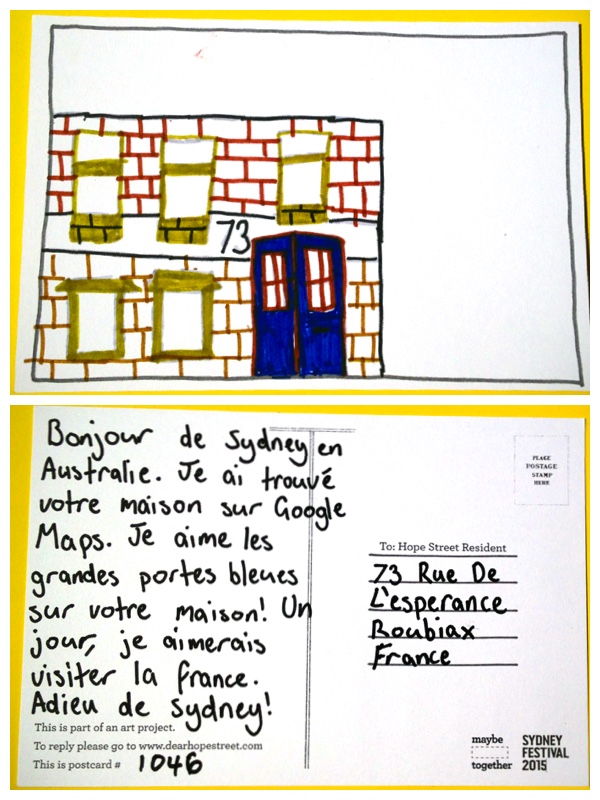 73
Bonjour de Sydney en
Australie. Je ai trouvé
votre maison sur Google
Maps. Je aime les
grandes portes bleues
sur votre maison! Un
jour, je aimerais
visiter la france.
Adieu de Sydney!
This is part of an art project.
To reply please go to www.dearhopestreet.com
This is postcard # 1046
PLACE
POSTAGE
STAMP
HERE
To: Hope Street Resident
73 Rue De
L'esperance
Roubiax
France
maybe
together
SYDNEY
FESTIVAL
2015